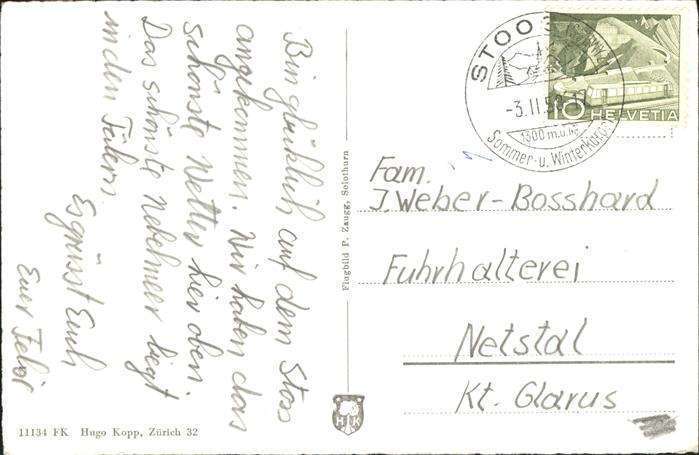 Bin glücklich auf dem Stoss
angekommen. Wir haben das
schönste Wetter hier oben
Das schönste Nebelmeer liegt
in den Tälern.
Es grüsst Euch
Euer
Flugbild P. Zaugg, Solothurn
11134 FK Hugo Kopp, Zürich 32
HK
STOO
-3.II.5
1300 m.ü.M.
Sommer- u. Winterkuror
10 HELVETIA
Fam.
J. Weber-Bosshard
Fuhrhalterei
Netstal
Kt. Glarus